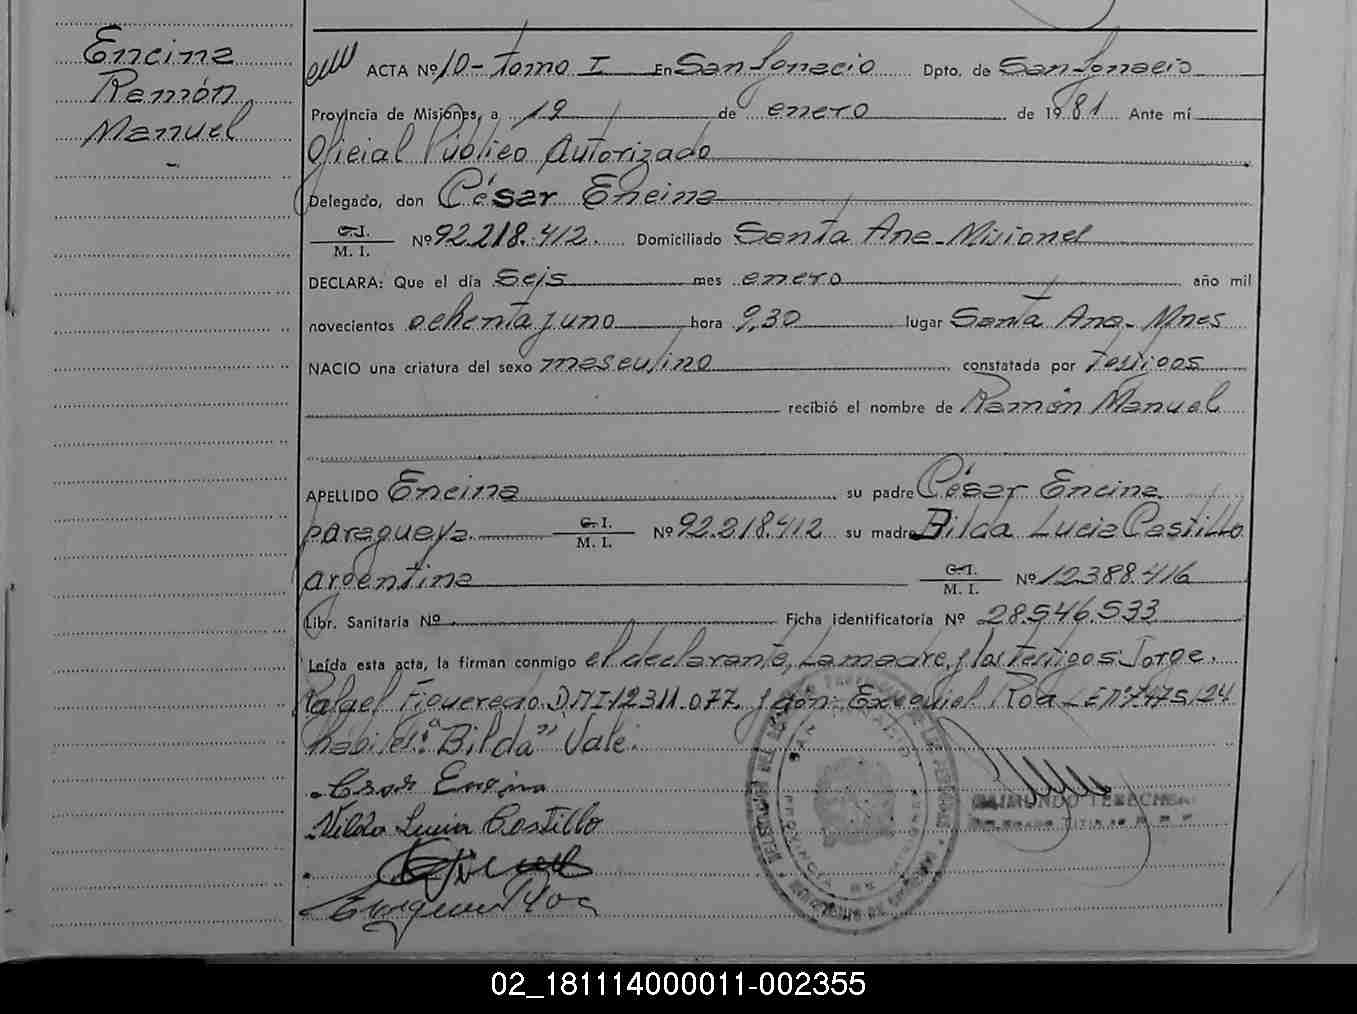 Encina
Ramón
Manuel
-
ACTA Nº 10- tomo I En San Ignacio Dpto. de San Ignacio
Provincia de Misiones, a 19 de enero de 1981 Ante mí
Oficial Público Autorizado
Delegado, don César Encina
C. I.
M. I. Nº 92.218.412. Domiciliado Santa Ana-Misiones
DECLARA: Que el día Seis mes enero año mil
novecientos ochenta y uno hora 9,30 lugar Santa Ana-Mnes
NACIO una criatura del sexo masculino constatada por testigos
recibió el nombre de Ramón Manuel
APELLIDO Encina su padre César Encina
paraguaya. C. I.
M. I. Nº 92.218.412 su madre Bilda Lucia Castillo
argentina C. I.
M. I. Nº 12.388.416
Libr. Sanitaria Nº Ficha identificatoria Nº 28.546.533
Leída esta acta, la firman conmigo el declarante, la madre, y los testigos: Jorge
Rafael Figueredo D.N.I 12.311.077. y don: Exequiel Roa
hábiles: "Bilda" Vale.
Cesar Encina
Nilda Lucia Castillo
Exequiel Roa
RAIMUNDO
02_181114000011-002355